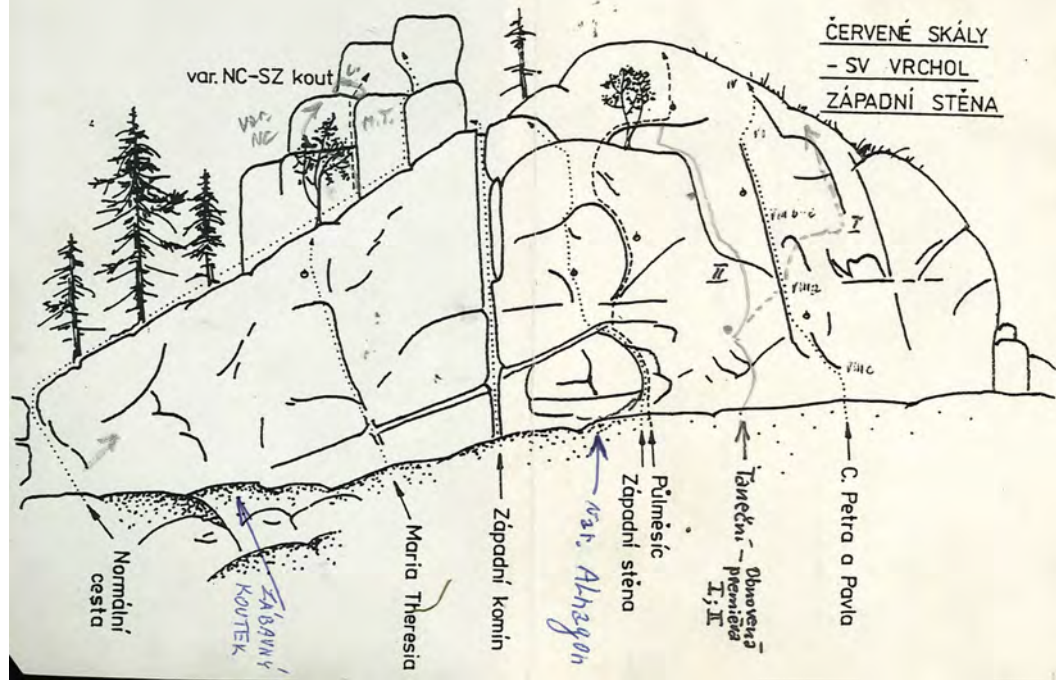 ČERVENÉ SKÁLY
- SV VRCHOL
ZÁPADNÍ STĚNA
var. NC-SZ kout
V.
Var.
NC
M.T.
IV
VI
VIIb-c
I
II
VIIIa
VIIIc
Normální
cesta
ZÁBAVNÝ
KOUTEK
Maria Theresia
Západní komín
Var. Alhagon
Západní stěna
Půlměsíc
Taneční - Obnovená
premiéra
I; II
C. Petra a Pavla